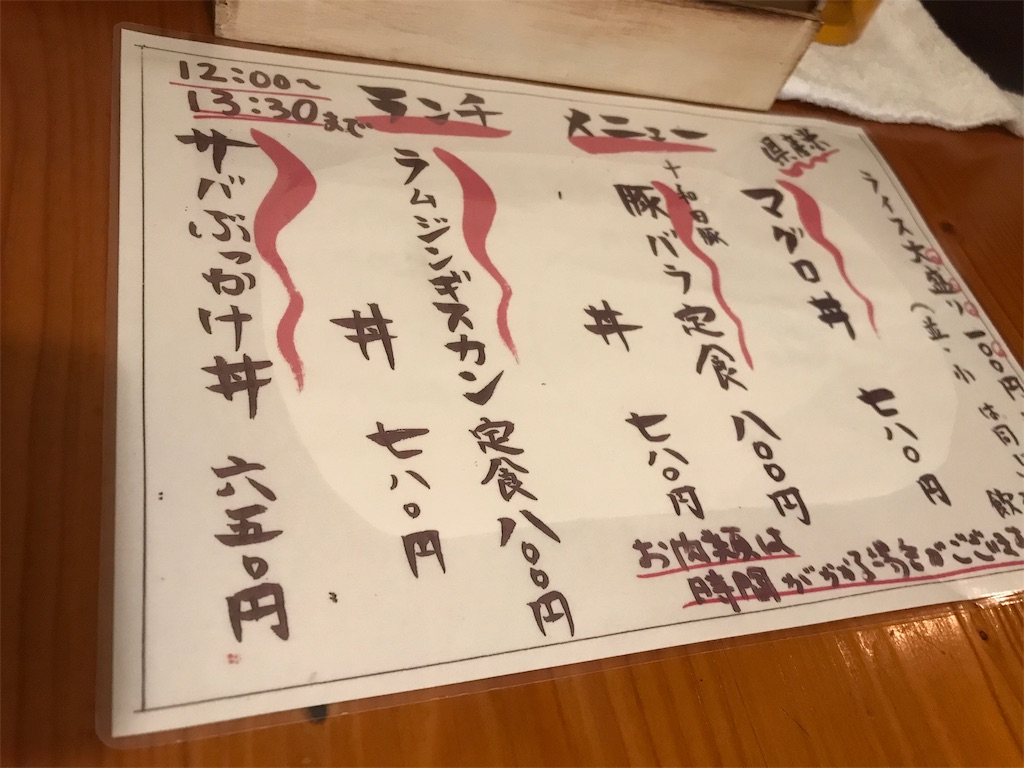 12:00～
13:30まで
ランチ
メニュー
県産米
ライス大盛り一〇〇円
(並・小は同じ
飲
マグロ丼 七八〇円
十和田豚
豚バラ定食 八〇〇円
丼 七八〇円
ラムジンギスカン定食 八〇〇円
丼 七八〇円
サバぶっかけ丼 六五〇円
お肉類は
時間がかかる場合がござい